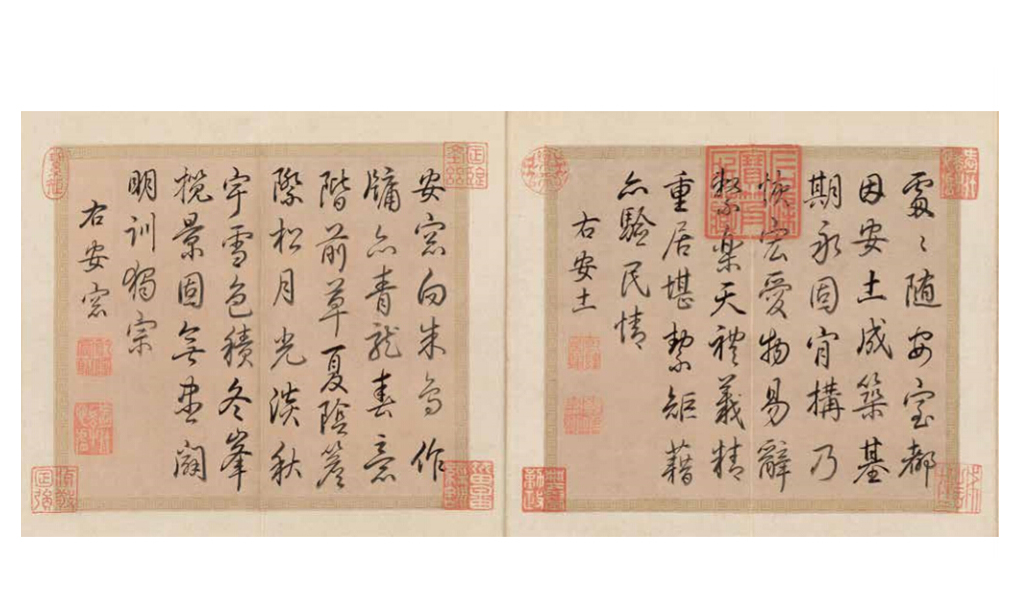 處〻随安室都
因安土成築基
期永固肯構乃
恢宏愛物易辭
繫樂天禮義精
重居堪絜矩藉
亦驗民情
右安土
安窓向朱鳥作
牖亦青龍春意
階前草夏陰簷
際松月光淡秋
宇雪色積冬峯
攬景固無盡闢
明訓獨宗
右安窓